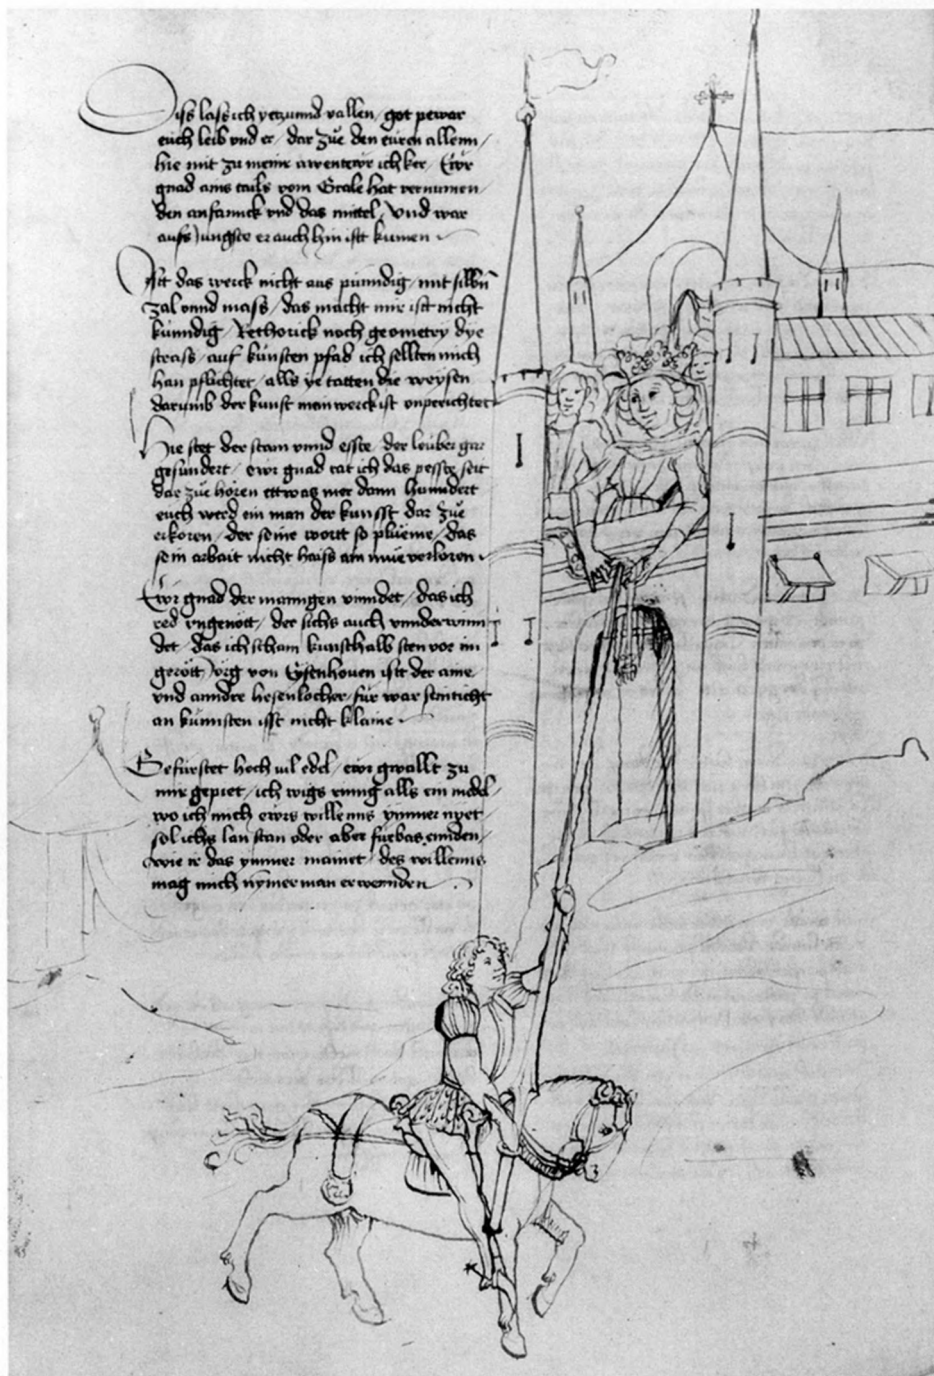 Diss lass ich yetzunnd vallen / got pewar
euch leib vnd er / dar zue den euren allenn /
hie mit zu meinr awentewr ich ker / Ewr
gnad ains tails vom Grale hat vernumen /
den anfannck vnd das mittel / vnd war
aufs Jungste er auch hin istt kumen
Istt das werck nicht aus pünndig / mit silbn
zal vnnd mass / das macht mir istt nicht
künndig / Rethorick noch geometry dye
strass / auf künsten pfad ich sellten mich
han pflichtet / alls ye tatten die weysen
darumb der kunst mein werck ist vnperichtet
Hie stet der stam vnnd esste / der leuber gar
gesundert / ewr gnad tat ich das pesste seit
dar zue hören ettwas mer dann hunndert
euch werd ein man der kunsst dar zue
erkoren / der seine wortt so plüeme / das
sein arbait nicht haiss am mue verloren
Ewr gnad der manngen vinndet / das ich
red vngenött / der sichs auch vnnderwinn
det / das ich scham kunsthalb sten vor im
gerött Jörg von Eysenhouen istt der aine
vnd anndre hesenlocher für war sein ticht
an künnsten isst nicht klaine
Gefürstet hoch vil edel / ewr gwallt zu
mir gepiet / ich wigs ring alls ein nedel
wo ich mich ewrs willenns ymmer nyet
sol ichs lan stan oder aber fürbas ennden /
wie ir das ymmer mainet / des willenns
mag mich nymer man erwennden